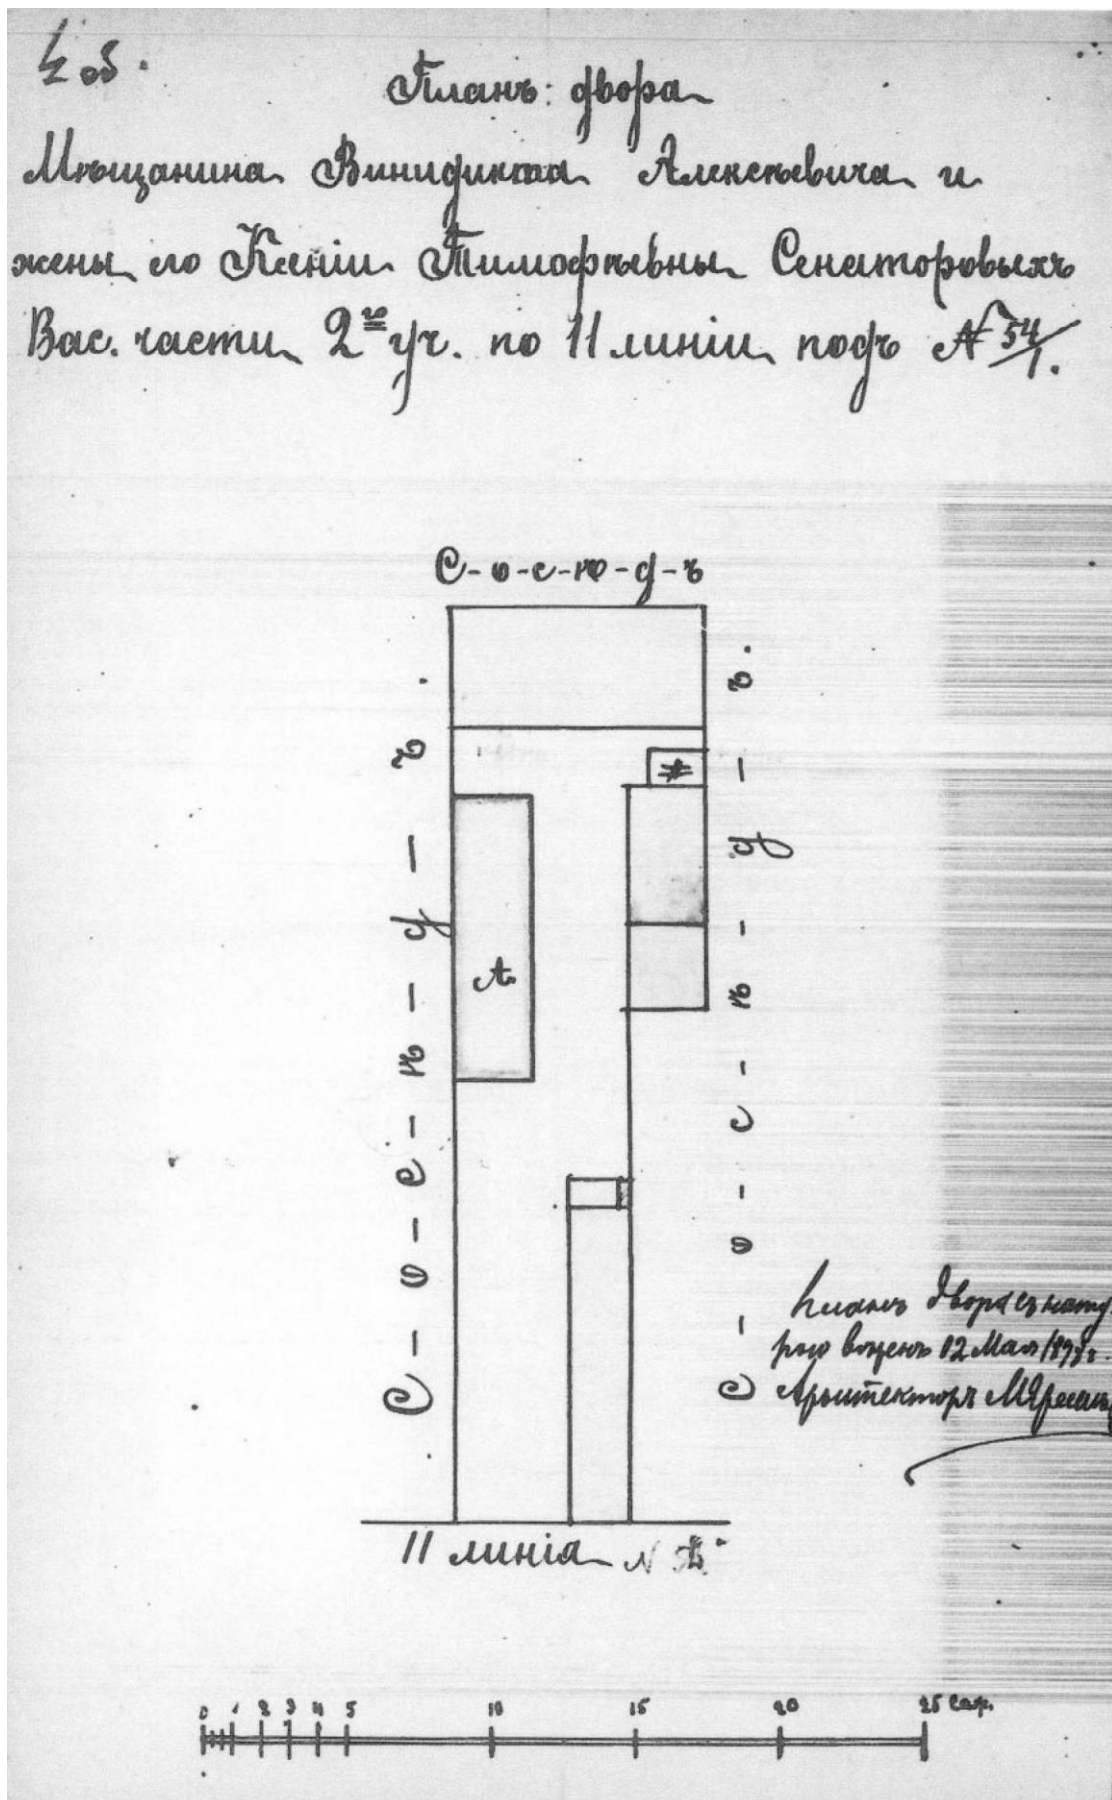 4 об.
Планъ: двора
Мѣщанина Винидикта Алексѣевича и
жены его Ксеніи Тимофѣевны Сенаторовыхъ
Вас. части 2го уч. по 11 линіи подъ № 54/1.
С-о-с-ѣ-д-ъ
С-о-с-ѣ-д-ъ.
А.
С-о-с-ѣ-д-ъ.
Планъ двора съ нату-
рою вѣренъ 12 Мая 189
Архитекторъ
11 линія N
0 1 2 3 4 5 10 15 20 25 саж.